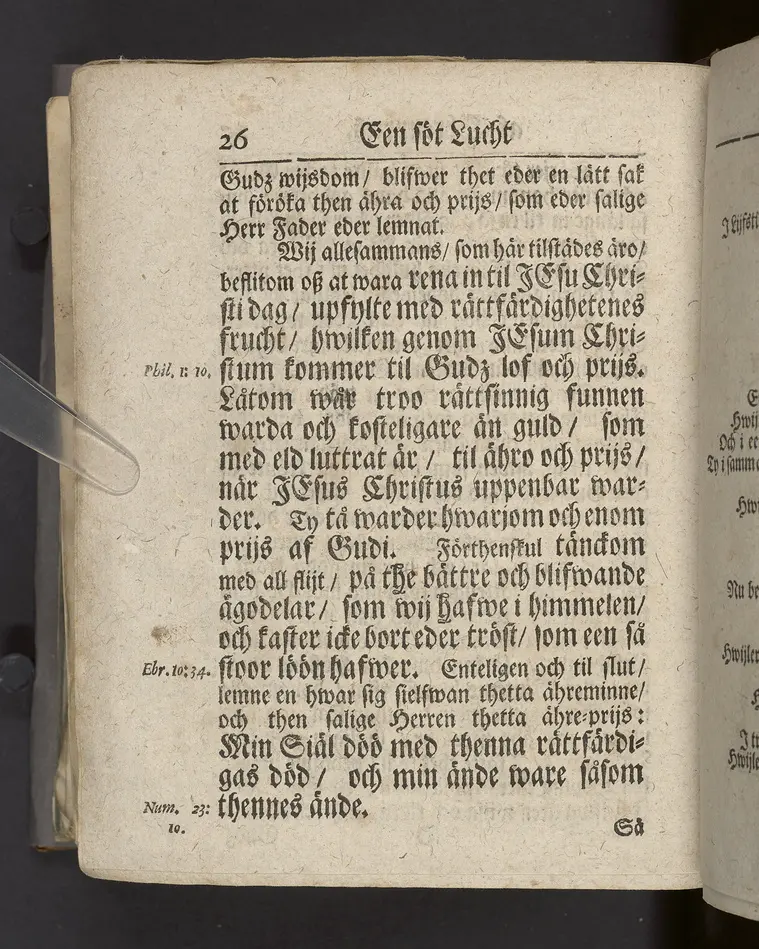 26 Een söt Lucht
Gudz wijsdom/ blifwer thet eder en lätt sak
at föröka then ähra och prijs/ som eder salige
Herr Fader eder lemnat.
Wij allesammans/ som här tilstädes äro/
beflitom oß at wara rena in til JEsu Chri=
sti dag/ upfylte med rättfärdighetenes
frucht/ hwilken genom JEsum Chri=
Phil. 1: 10. stum kommer til Gudz lof och prijs.
Låtom wår troo rättsinnig funnen
warda och kosteligare än guld/ som
med eld luttrat är/ til ähro och prijs/
när JEsus Christus uppenbar war=
der. Ty tå warder hwarjom och enom
prijs af Gudi. Förthenskul tänckom
med all flijt/ på the bättre och blifwande
ägodelar/ som wij hafwe i himmelen/
och kaster icke bort eder tröst/ som een så
Ebr. 10: 34. stoor löön hafwer. Enteligen och til slut/
lemne en hwar sig sielfwan thetta ähreminne/
och then salige Herren thetta ähre=prijs:
Min Siäl döö med thenna rättfärdi=
gas död/ och min ände ware såsom
Num. 23: thennes ände.
10.
Så
J lijfsti
E
Hwij
Och i ee
Ty i samm
Hwi
Nu be
Hwijler
J tr
Hwijle